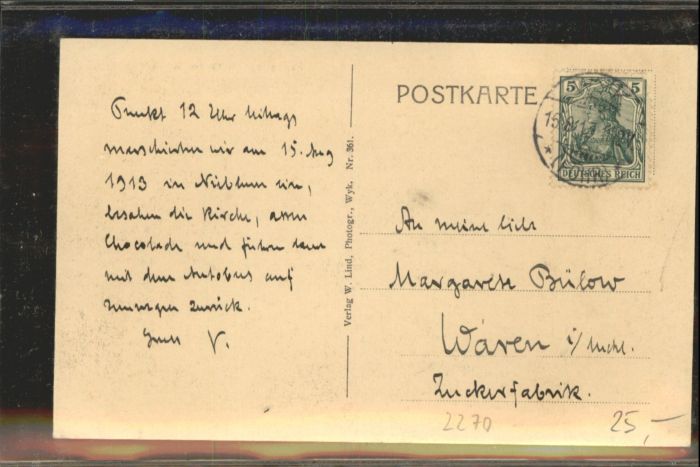 Punkt 12 Uhr mittags
marschierten wir am 15. Aug
1913 in Nieblum ein,
besahen die Kirche, assen
Chocolade und fuhren dann
mit dem Autobus auf
zurück.
Gruss V.
Verlag W. Lind, Photogr., Wyk. Nr. 361.
POSTKARTE
5 5
DEUTSCHES REICH
15.8.13
(FÖHR)
An meine liebe
Margarete Bülow
Waren i/Meckl.
Zuckerfabrik.
2270
25,–